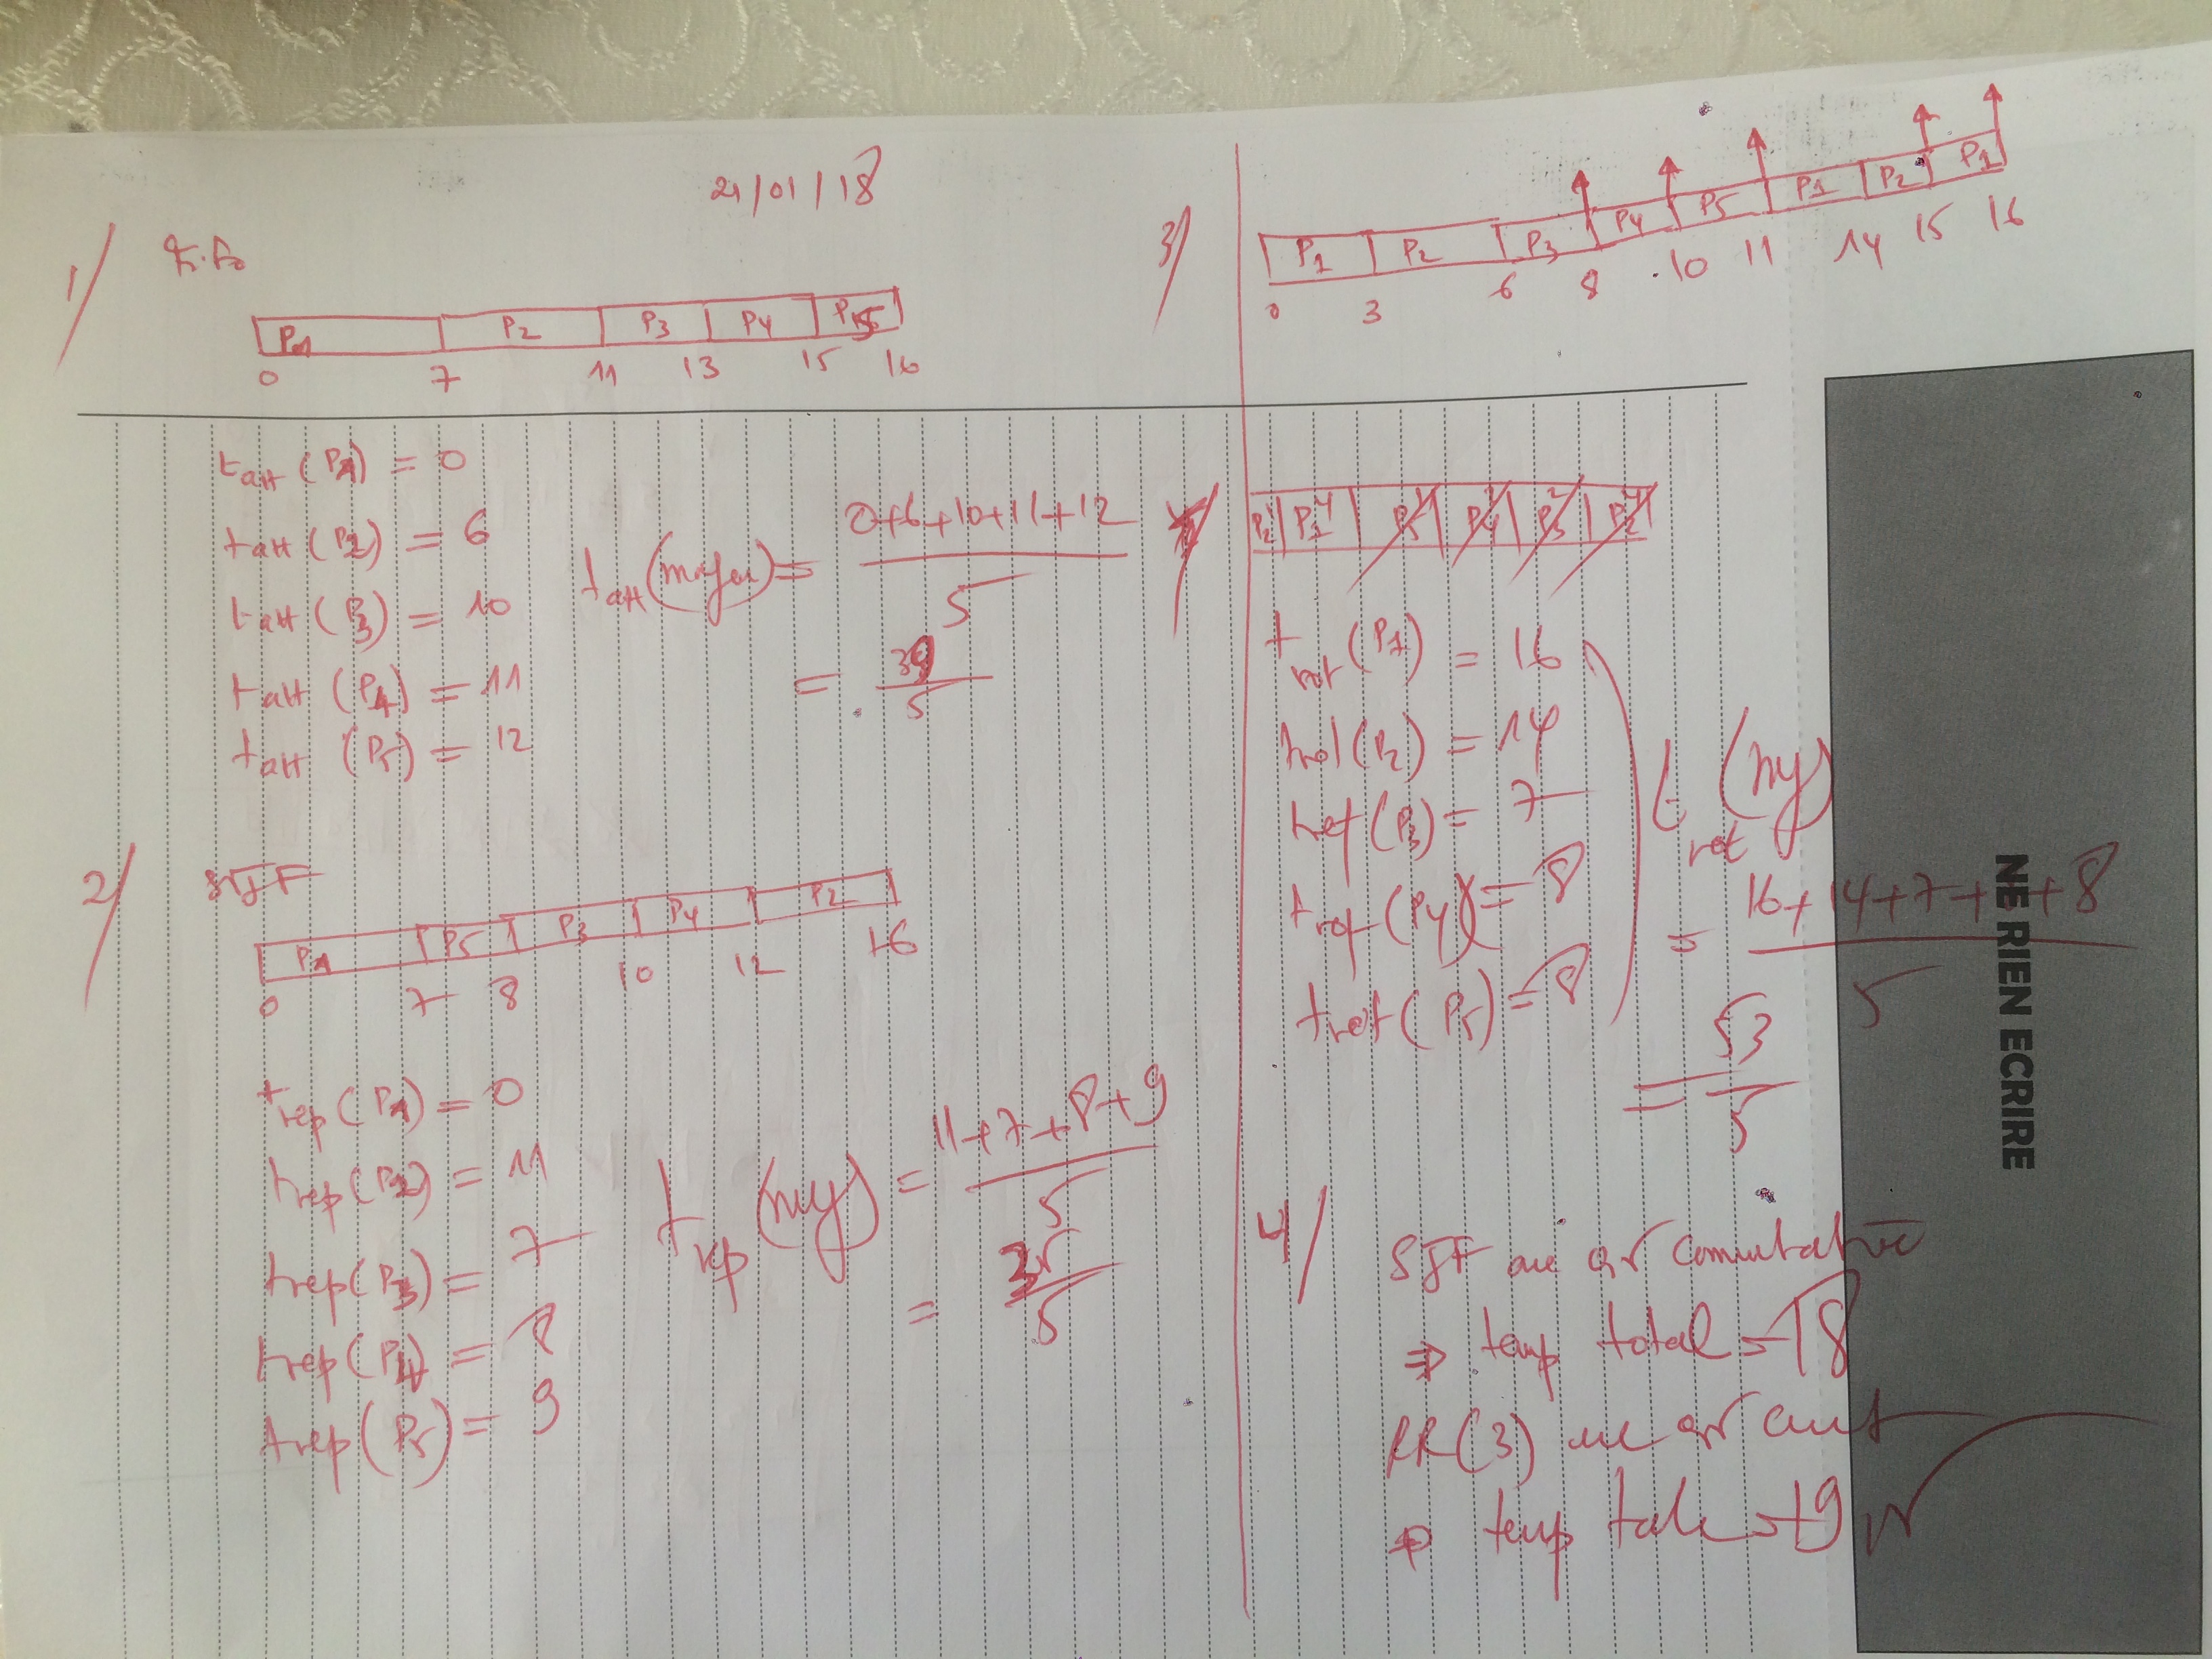 21/01/18
1/
P1 P2 P3 P4 P5
0 7 11 13 15 16
t att (P1) = 0
t att (P2) = 6
t att (P3) = 10
t att (P4) = 11
t att (P5) = 12
t att (moyen) = 0+6+10+11+12
5
= 39
5
2/ SJF
P1 P5 P3 P4 P2
0 7 8 10 12 16
t rep (P1) = 0
t rep (P2) = 11
t rep (P3) = 7
t rep (P4) = 8
t rep (P5) = 9
t rep (my) = 11+7+8+9
5
= 35
5
3/
P1 P2 P3 P4 P5 P1 P2 P1
0 3 6 8 10 11 14 15 16
t rot (P1) = 16
t rot (P2) = 14
t rot (P3) = 7
t rot (P4) = 8
t rot (P5) = 8
t rot (my)
= 16+14+7+ +8
5
= 53
5
4/
SJF
⇒ temp total = 18
RR(3)
⇒ temp = 19
NE RIEN ECRIRE